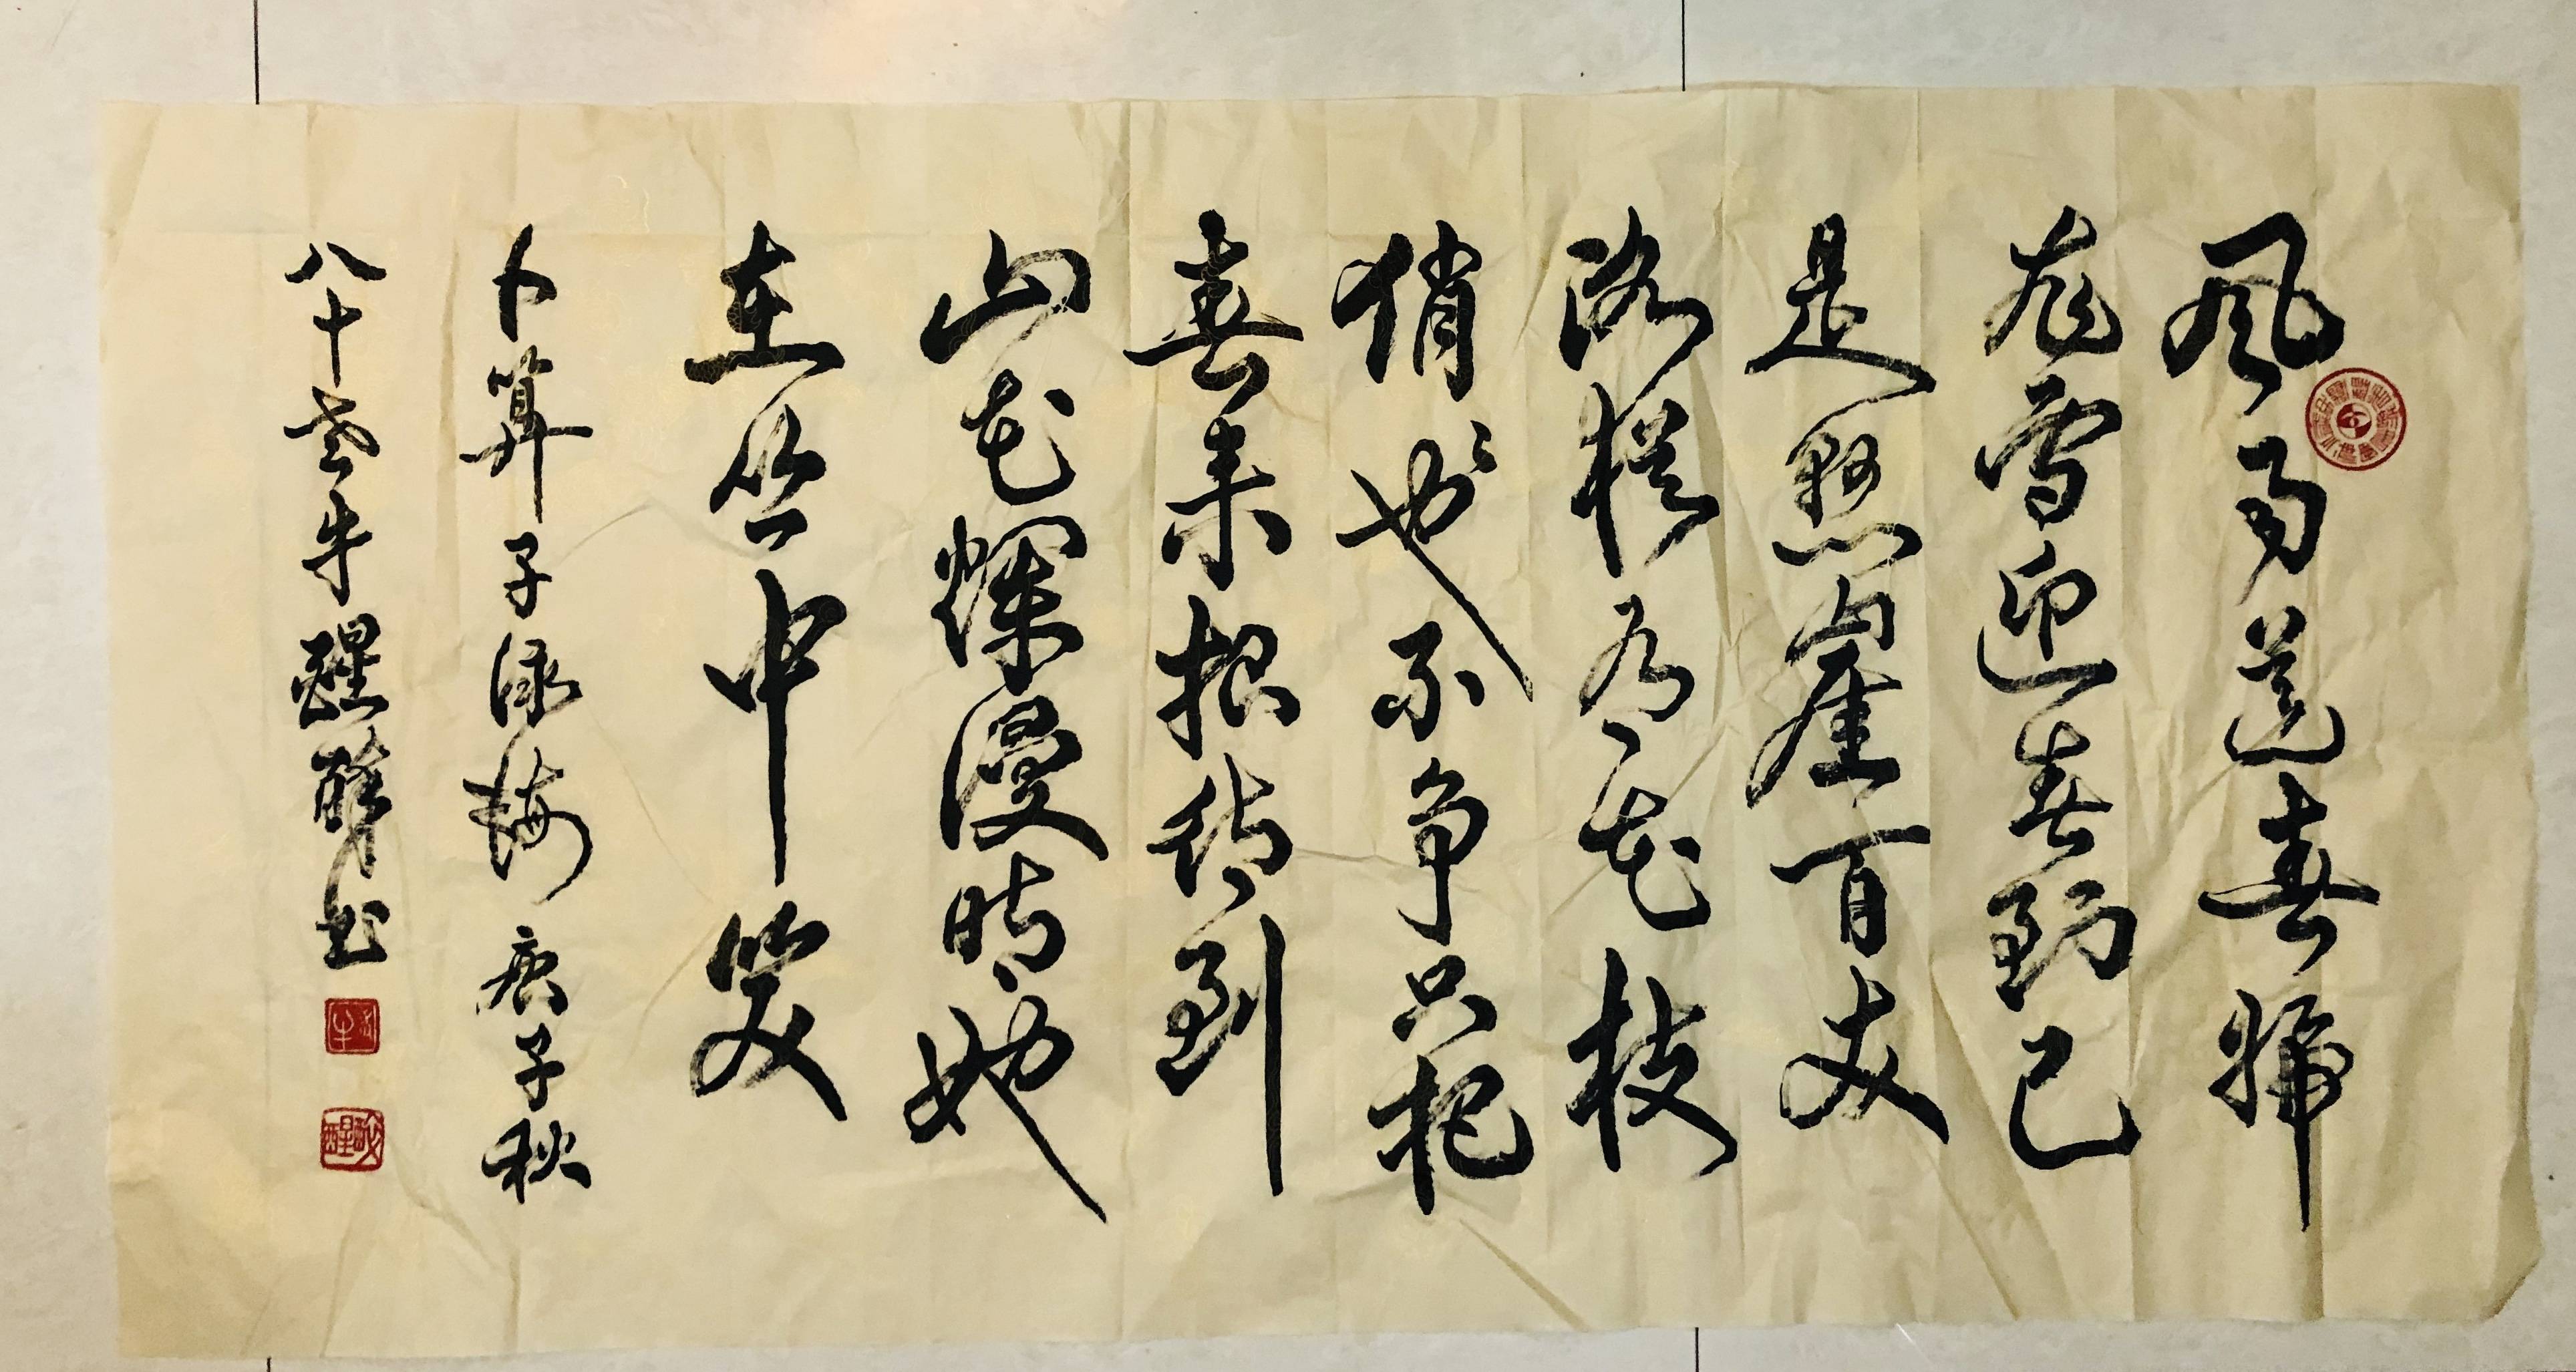 風雨送春歸
飛雪迎春到已
是懸崖百丈
冰猶有花枝
俏〻也不争只把
春来报待到
山花爛漫時她
在丛中笑
卜算子詠梅 庚子秋
八十老牛醒醉书